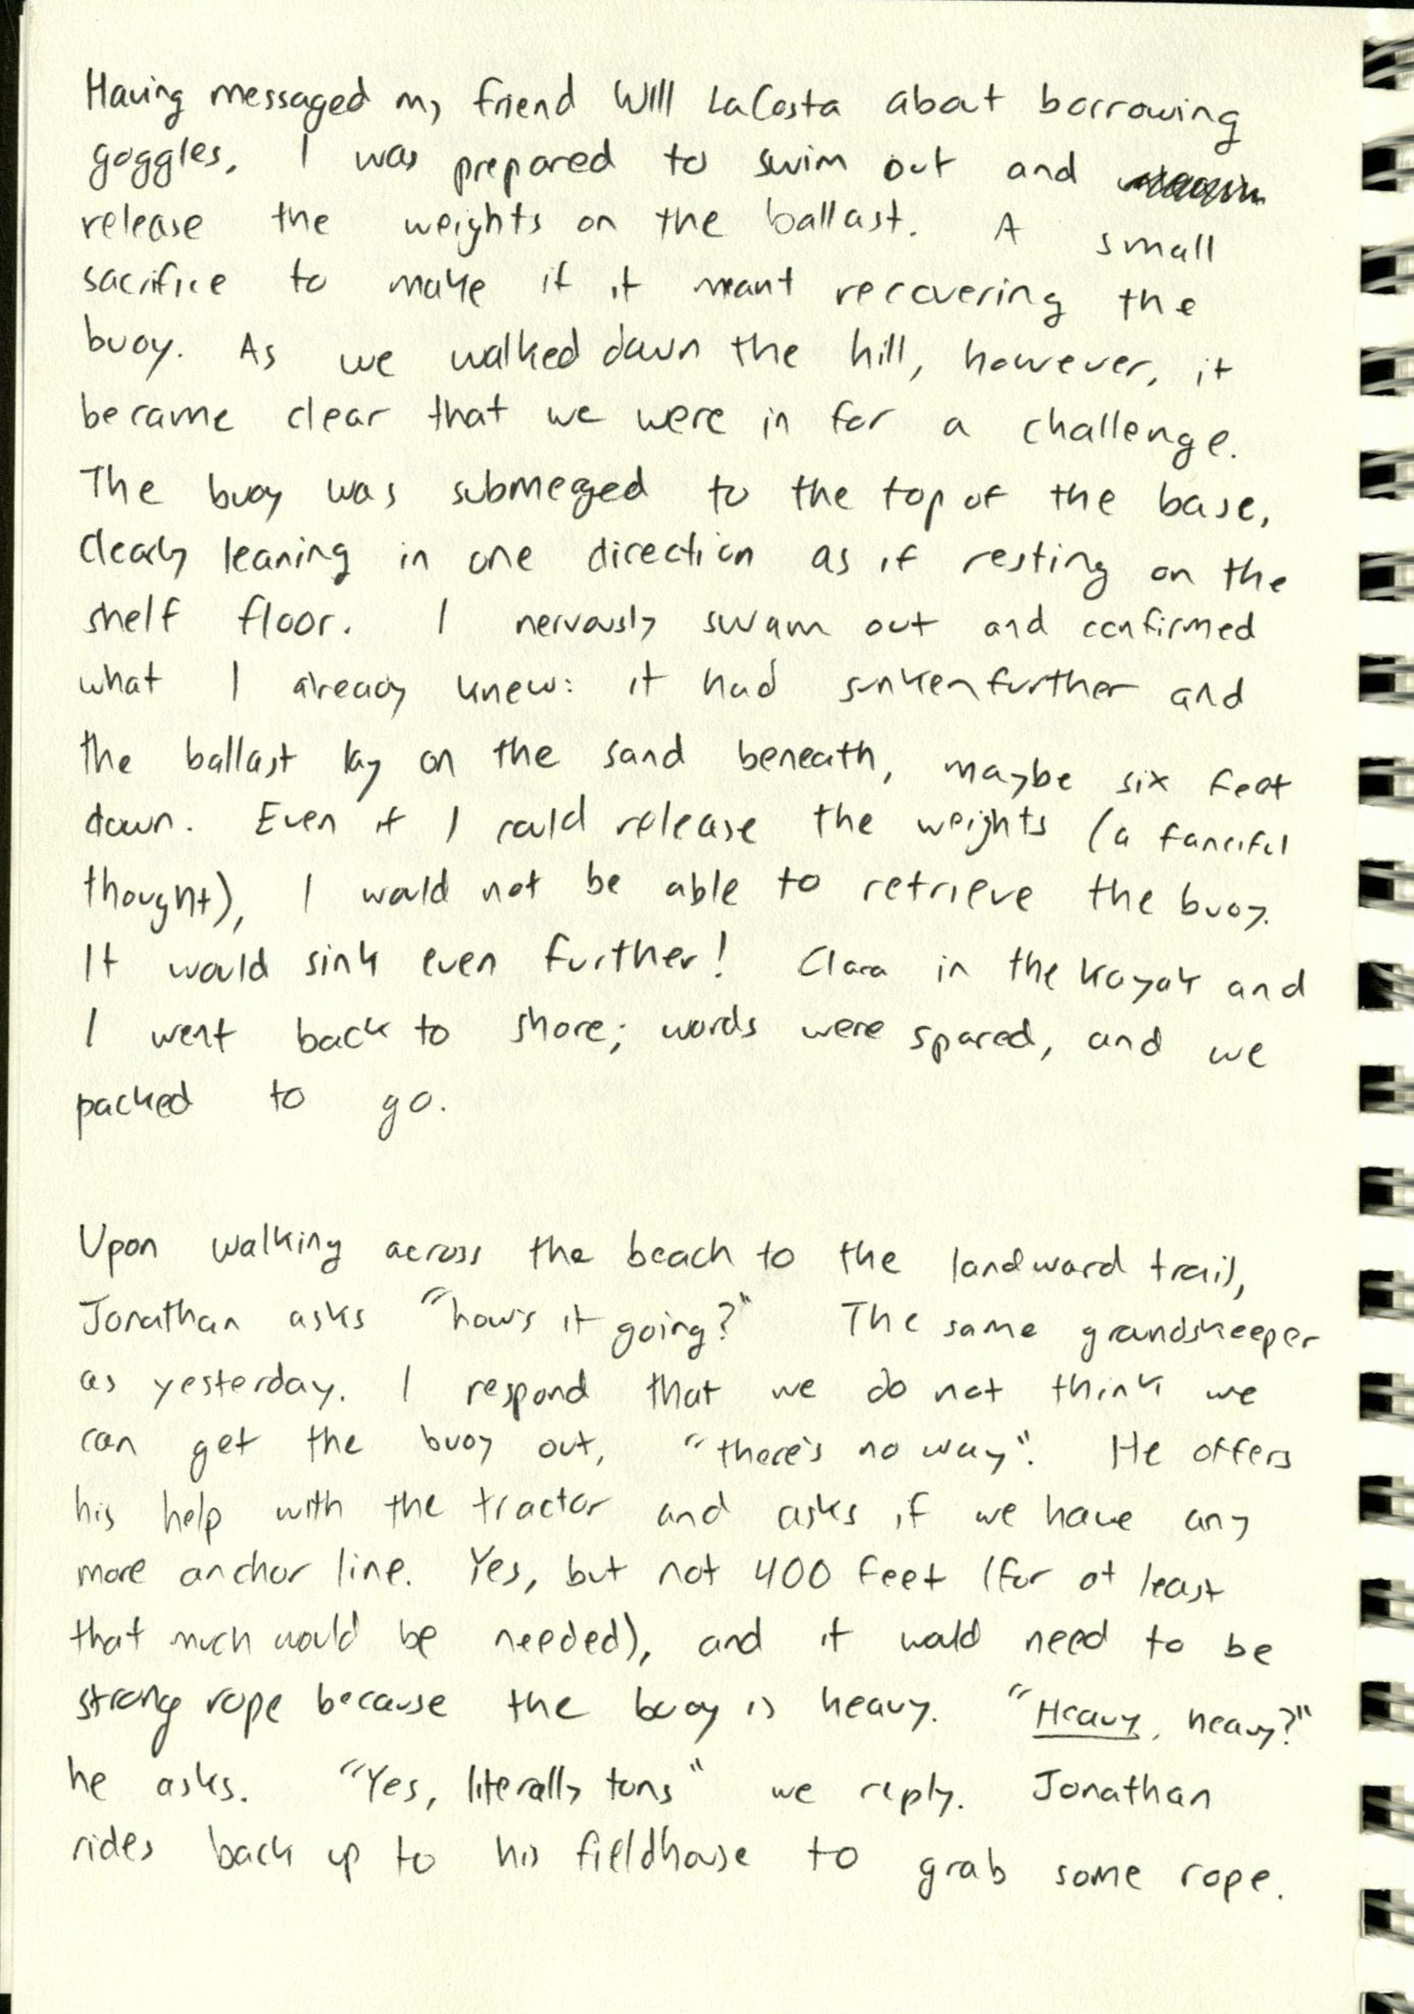 Having messaged my friend Will LaCosta about borrowing
goggles, I was prepared to swim out and
release the weights on the ballast. A small
sacrifice to make if it meant recovering the
buoy. As we walked down the hill, however, it
became clear that we were in for a challenge.
The buoy was submerged to the top of the base,
clearly leaning in one direction as if resting on the
shelf floor. I nervously swam out and confirmed
what I already knew: it had sunken further and
the ballast lay on the sand beneath, maybe six feet
down. Even if I could release the weights (a fanciful
thought), I would not be able to retrieve the buoy.
It would sink even further! Clara in the kayak and
I went back to shore; words were spared, and we
packed to go.
Upon walking across the beach to the landward trail,
Jonathan asks "how's it going?" The same grandskeeper
as yesterday. I respond that we do not think we
can get the buoy out, "there's no way". He offers
his help with the tractor and asks if we have any
more anchor line. Yes, but not 400 feet (for at least
that much would be needed), and it would need to be
strong rope because the buoy is heavy. "Heavy, heavy?"
he asks. "Yes, literally tons" we reply. Jonathan
rides back up to his fieldhouse to grab some rope.